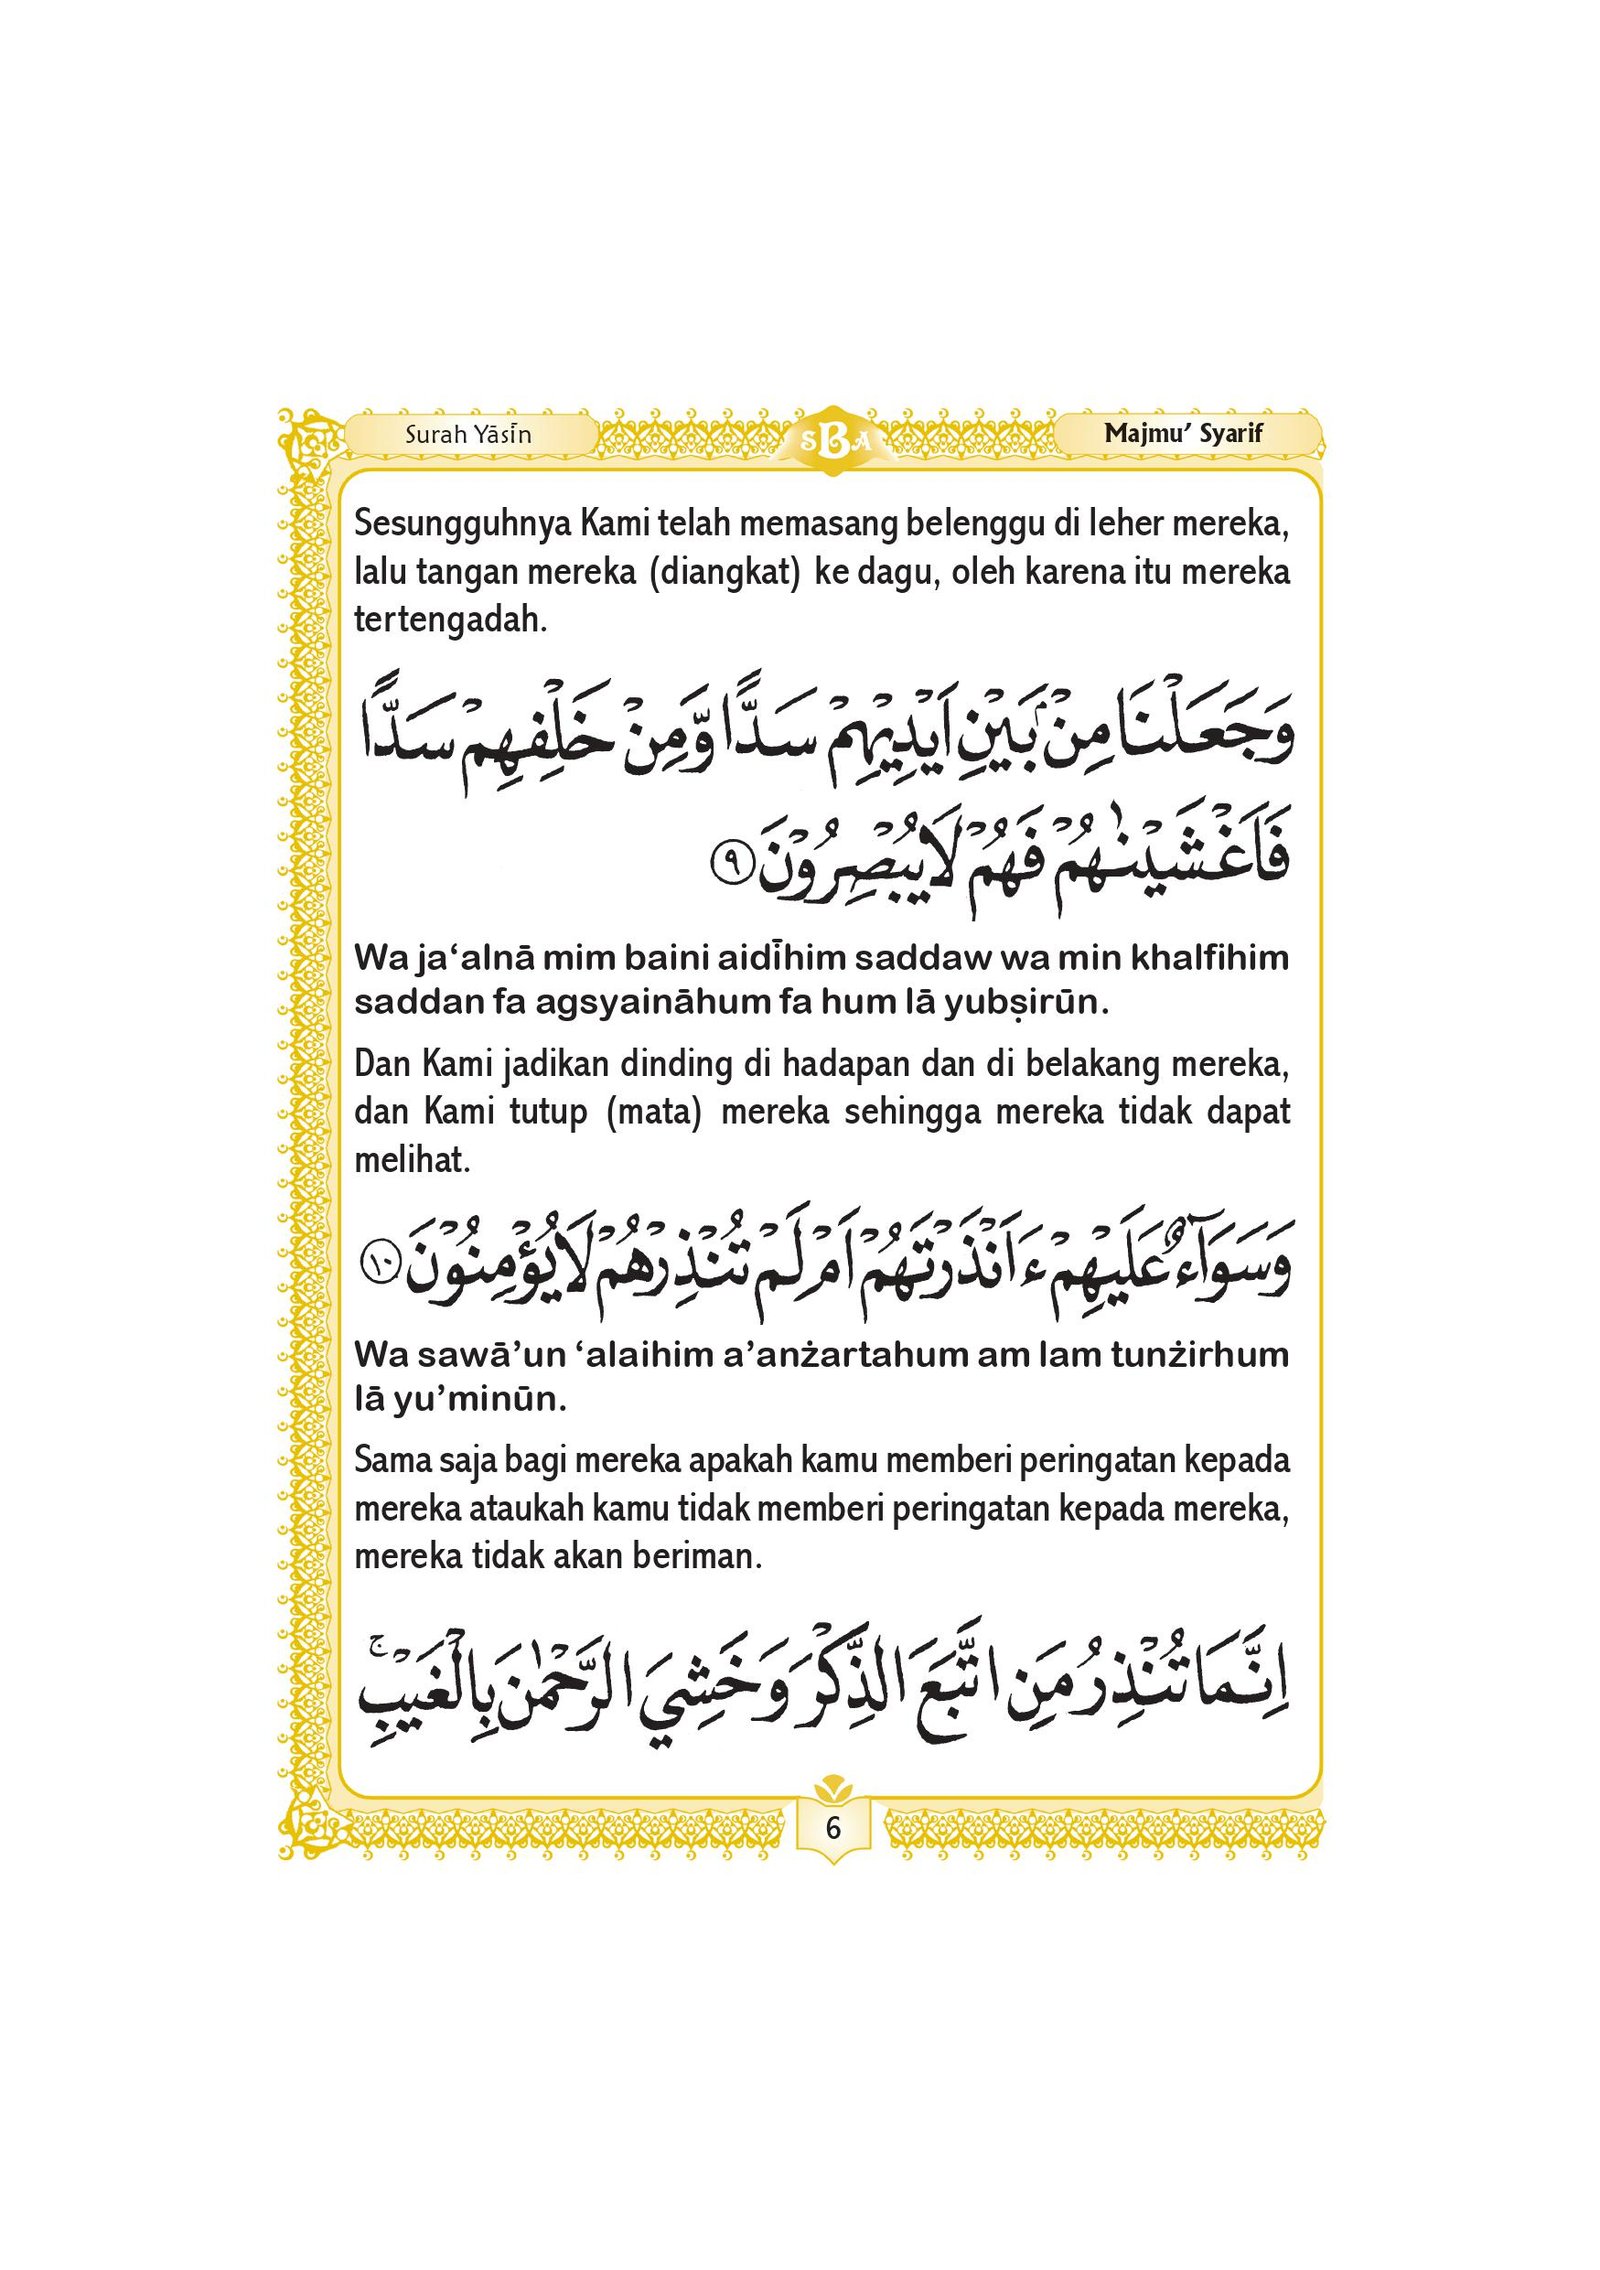 Surah Yāsīn
SBA
Majmu’ Syarif
Sesungguhnya Kami telah memasang belenggu di leher mereka,
lalu tangan mereka (diangkat) ke dagu, oleh karena itu mereka
tertengadah.
وَجَعَلْنَا مِنْۢ بَيْنِ اَيْدِيْهِمْ سَدًّا وَّمِنْ خَلْفِهِمْ سَدًّا
فَاَغْشَيْنٰهُمْ فَهُمْ لَا يُبْصِرُوْنَ ٩
Wa ja‘alnā mim baini aidīhim saddaw wa min khalfihim
saddan fa agsyaināhum fa hum lā yubṣirūn.
Dan Kami jadikan dinding di hadapan dan di belakang mereka,
dan Kami tutup (mata) mereka sehingga mereka tidak dapat
melihat.
وَسَوَاۤءٌ عَلَيْهِمْ ءَاَنْذَرْتَهُمْ اَمْ لَمْ تُنْذِرْهُمْ لَا يُؤْمِنُوْنَ ١٠
Wa sawā’un ‘alaihim a’anżartahum am lam tunżirhum
lā yu’minūn.
Sama saja bagi mereka apakah kamu memberi peringatan kepada
mereka ataukah kamu tidak memberi peringatan kepada mereka,
mereka tidak akan beriman.
اِنَّمَا تُنْذِرُ مَنِ اتَّبَعَ الذِّكْرَ وَخَشِيَ الرَّحْمٰنَ بِالْغَيْبِۚ
6